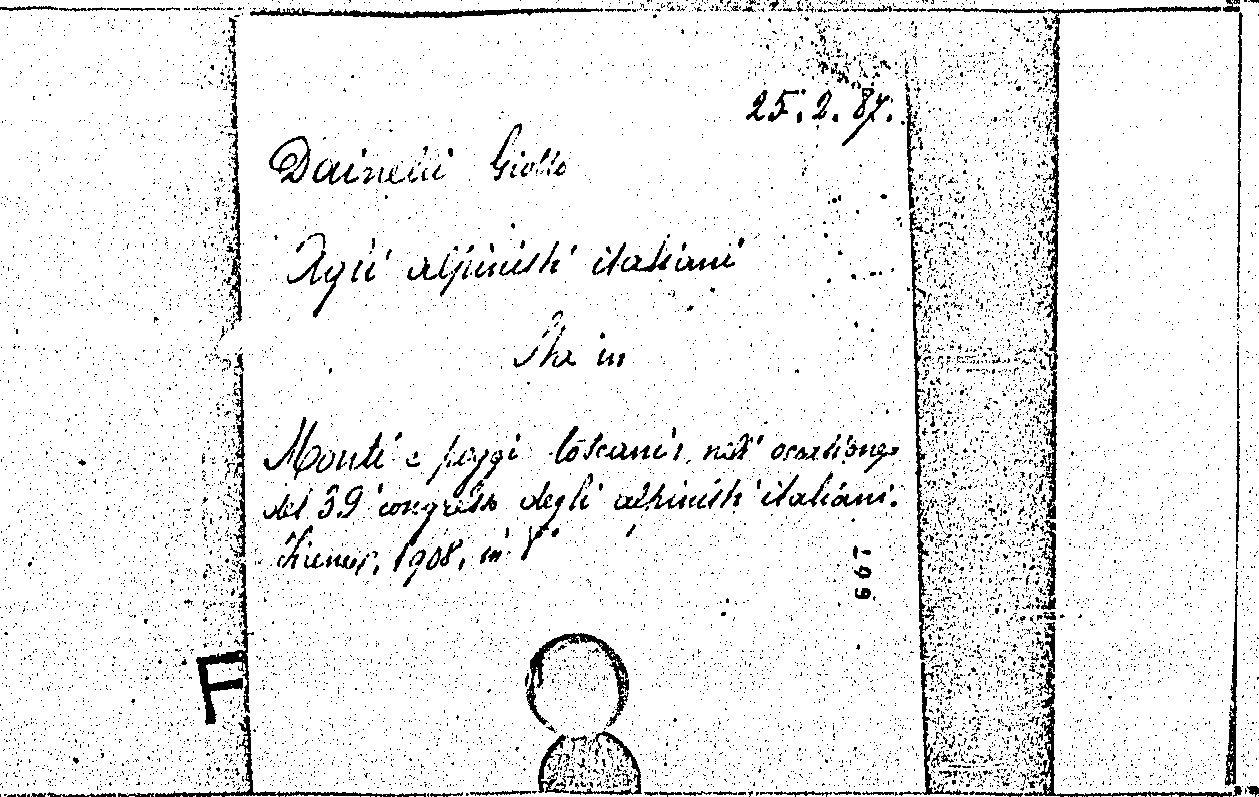 25.2.87.
Dainelli Giotto
Agli alpinisti italiani
Sta in
Monti e poggi toscani, nell' occasione
del 39 congresso degli alpinisti italiani.
Firenze, 1908, in 8°
199
F